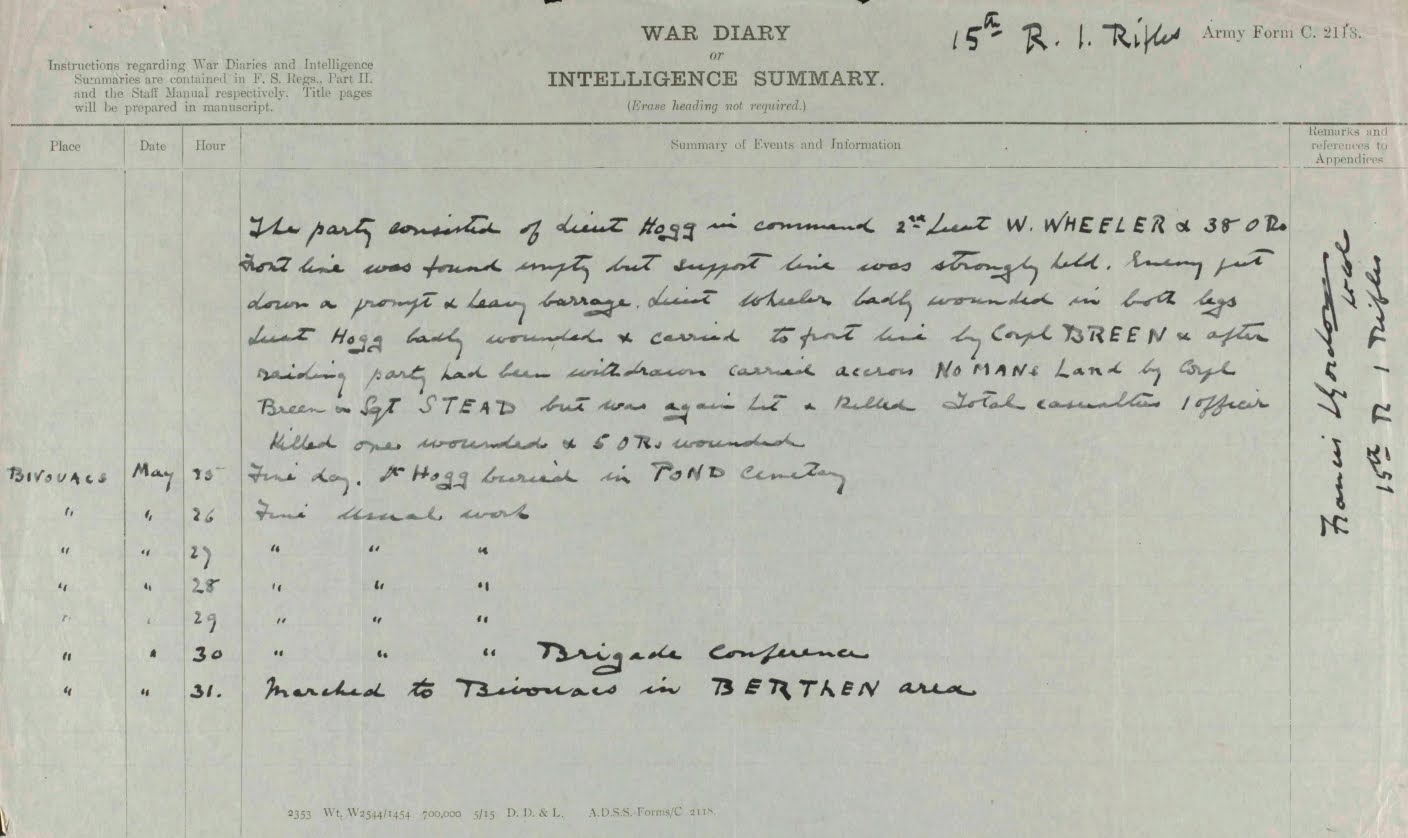 WAR DIARY
or
INTELLIGENCE SUMMARY.
(Erase heading not required.)
15th R. I. Rifles
Army Form C. 2118.
Instructions regarding War Diaries and Intelligence
Summaries are contained in F. S. Regs., Part II.
and the Staff Manual respectively. Title pages
will be prepared in manuscript.
Place Date Hour Summary of Events and Information Remarks and
references to
Appendices
The party consisted of Lieut Hogg in command 2nd Lieut W. WHEELER & 38 O Rs
Front line was found empty but support line was strongly held. Enemy put
down a prompt & heavy barrage. Lieut Wheeler badly wounded in both legs
Lieut Hogg badly wounded & carried to front line by Corpl BREEN & after
raiding party had been withdrawn carried accross NO MANS Land by Corpl
Breen & Sgt STEAD but was again hit & killed Total casualties 1 officer
killed one wounded & 5 O Rs wounded
BIVOUACS May 25 Fine day. Lt Hogg buried in POND Cemetery
" " 26 Fine usual work
" " 27 " " "
" " 28 " " "
" " 29 " " "
" " 30 " " " Brigade Conference
" " 31. Marched to Bivouacs in BERTHEN area
Francis Gordon
15th R I Rifles
2353 Wt. W2544/1454 700,000 5/15 D. D. & L. A.D.S.S. Forms/C 2118.